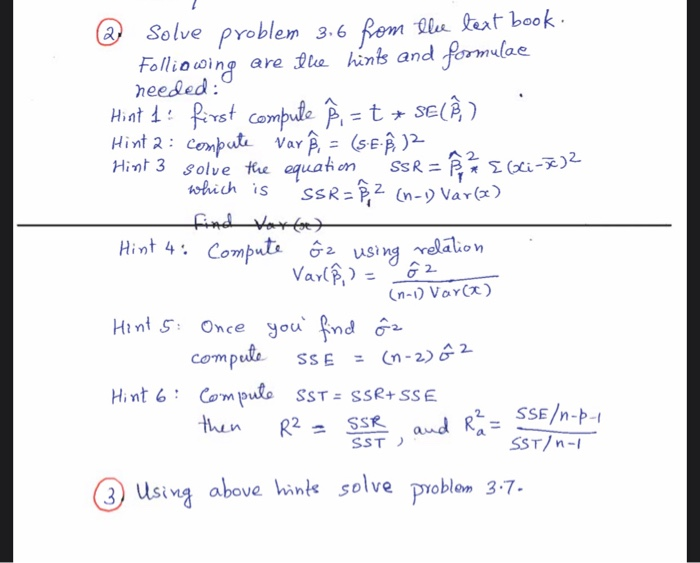 2. Solve problem 3.6 from the text book.
Folliowing are the hints and formulae
needed:
Hint 1: first compute β̂₁ = t * SE(β̂₁)
Hint 2: compute Var β̂₁ = (S.E.β̂₁)2
Hint 3 solve the equation SSR = β̂₁² * Σ(xi-x̄)2
which is SSR = β̂₁² (n-1) Var(x)
Find Var(x)
Hint 4: Compute σ̂2 using relation
Var(β̂₁) = σ̂2 / (n-1) Var(x)
Hint 5: Once you find σ̂2
compute SSE = (n-2) σ̂2
Hint 6: Compute SST = SSR+SSE
then R2 = SSR/SST, and R²ₐ = SSE/n-p-1 / SST/n-1
3) Using above hints solve problem 3.7.